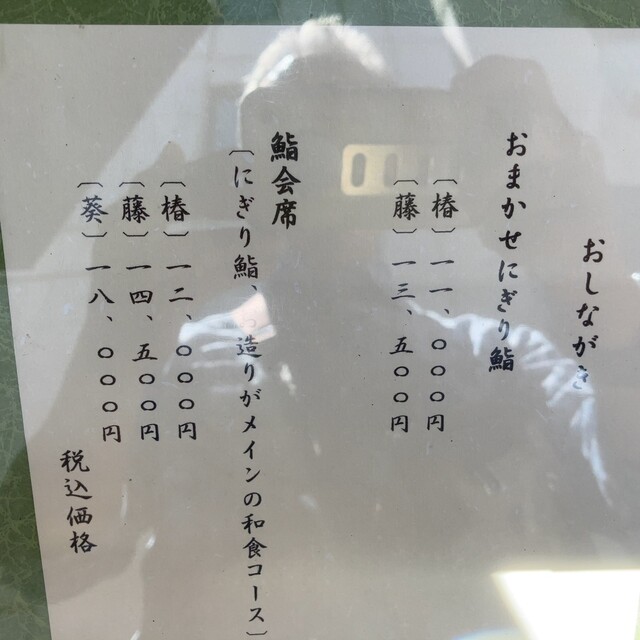 おしながき
おまかせにぎり鮨
〔椿〕一一、〇〇〇円
〔藤〕一三、五〇〇円
鮨会席
〔にぎり鮨、造りがメインの和食コース〕
〔椿〕一二、〇〇〇円
〔藤〕一四、五〇〇円
〔葵〕一八、〇〇〇円
税込価格